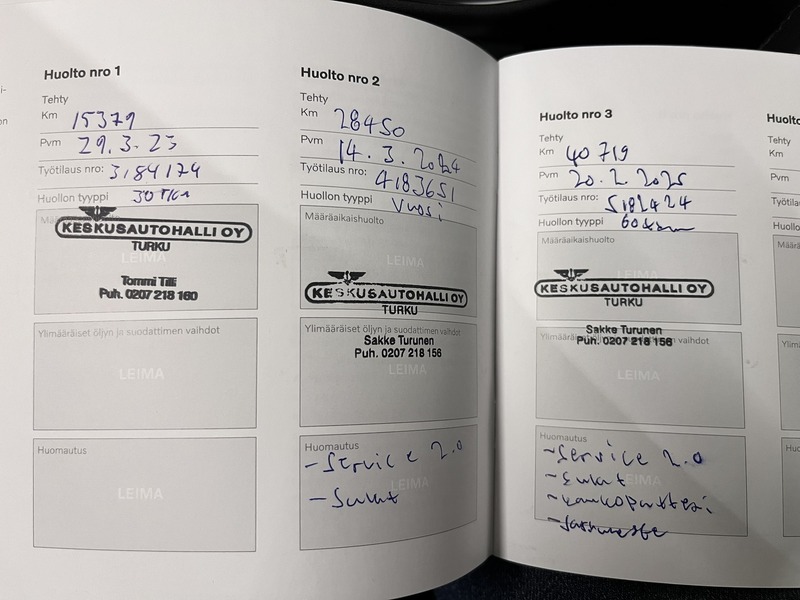 Huolto nro 1
Tehty
Km 15379
Pvm 29.3.23
Työtilaus nro: 3184174
Huollon tyyppi 30 Tkm
KESKUSAUTOHALLI OY
TURKU
LEIMA
Tommi Tilli
Puh. 0207 218 160
Ylimääräiset öljyn ja suodattimen vaihdot
LEIMA
Huomautus
LEIMA
Huolto nro 2
Tehty
Km 28450
Pvm 14.3.2024
Työtilaus nro: 4183651
Huollon tyyppi Vuosi
Määräaikaishuolto
LEIMA
KESKUSAUTOHALLI OY
TURKU
Ylimääräiset öljyn ja suodattimen vaihdot
Sakke Turunen
Puh. 0207 218 156
LEIMA
Huomautus
- Service 2.0
LEIMA
- Sulat
Huolto nro 3
Tehty
Km 40719
Pvm 20.2.2025
Työtilaus nro: 5182424
Huollon tyyppi 60tkm
Määräaikaishuolto
KESKUSAUTOHALLI OY
TURKU
Sakke Turunen
Puh. 0207 218 156
LEIMA
Huomautus
- Service 2.0
- Sulat
LEIMA
Tehty
Km
Pvm